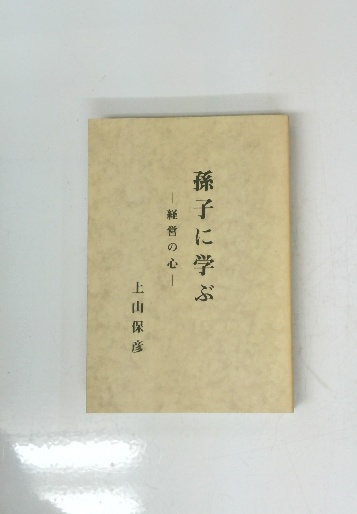 孫子に学ぶ
―経営の心―
上山保彦